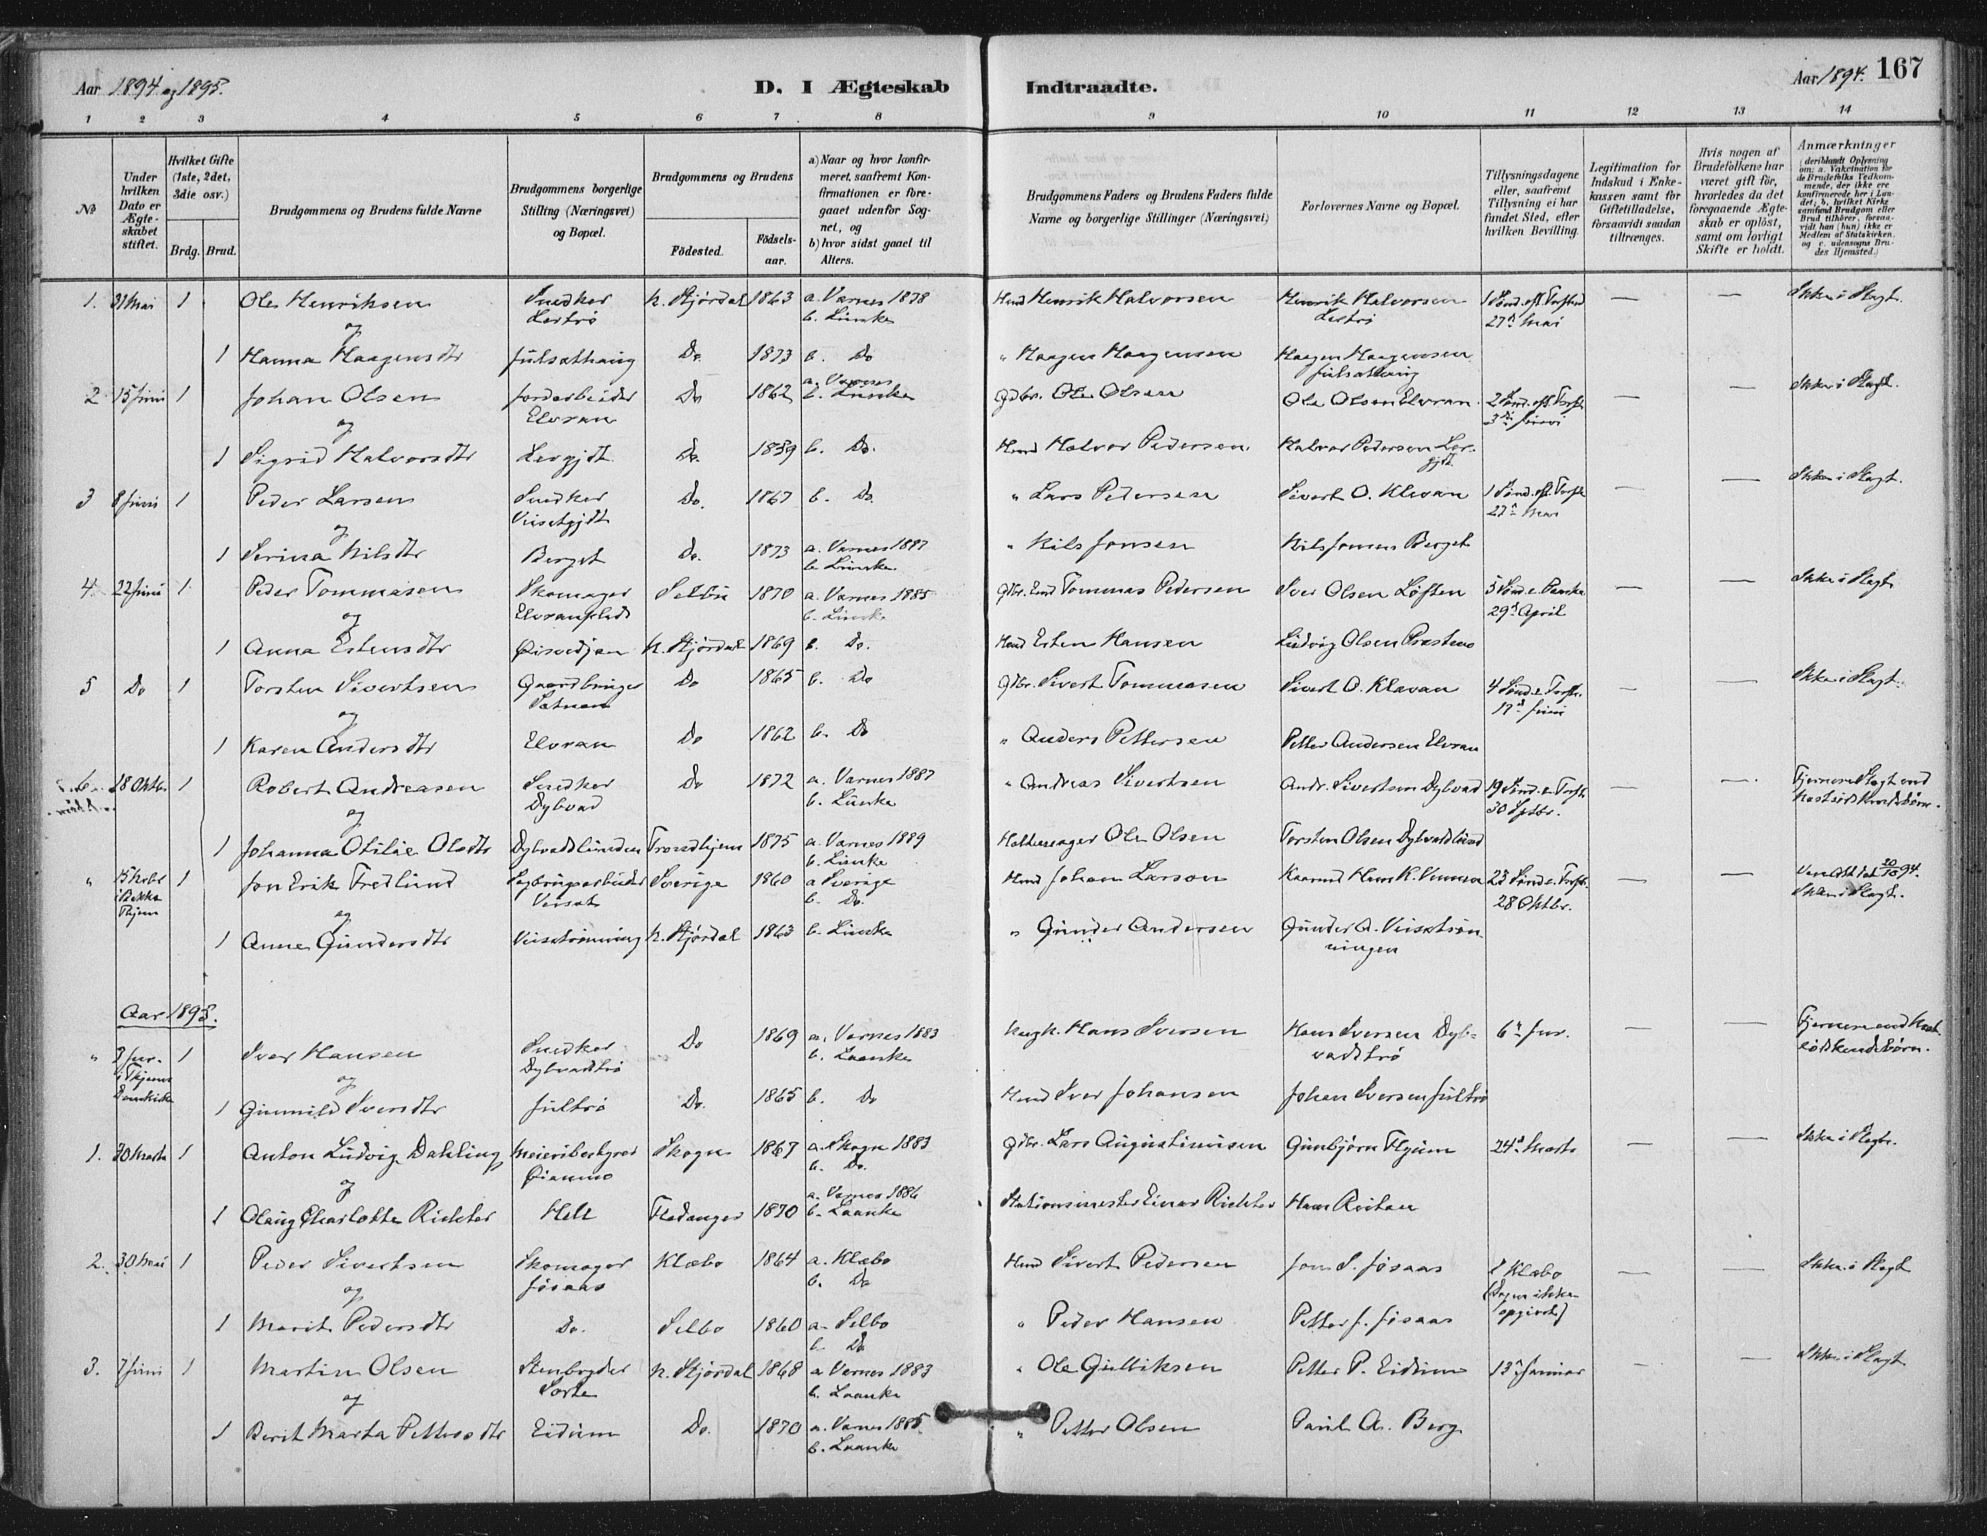 Aar 1894 og 1895.
D. I Ægteskab Indtraadte.
Aar 1894. 167
1 2 3 4 5 6 7 8 9 10 11 12 13 14
No
Under hvilken Dato er Ægteskabet stiftet.
Hvilket Gifte (1ste, 2det, 3die osv.)
Brdg. Brud.
Brudgommens og Brudens fulde Navne
Brudgommens borgerlige Stilling (Næringsvei) og Bopæl.
Brudgommens og Brudens
Fødested. Fødsels-aar.
a) Naar og hvor konfirmeret, saafremt Konfirmationen er foregaaet udenfor Sognet, og
b) hvor sidst gaaet til Alters.
Brudgommens Faders og Brudens Faders fulde Navne og borgerlige Stillinger (Næringsvei)
Forlovernes Navne og Bopæl.
Tillysningsdagene eller, saafremt Tillysning ei har fundet Sted, efter hvilken Bevilling.
Legitimation for Indskud i Enkekassen samt for Giftetilladelse, forsaavidt saadan tiltrænges.
Hvis nogen af Brudefolkene har været gift før, hvorledes da det foregaaende Ægteskab er opløst, samt om lovligt Skifte er holdt.
Anmærkninger
(deriblandt Oplysning om: a. Vakcination for de Brudefolks Vedkommende, der ikke ere konfirmerede her i Landet; b. hvilket Kirkesamfund Brudgom eller Brud tilhører, forsaavidt han (hun) ikke er Medlem af Statskirken, og c. udensogns Brudes Hjemsted.)
1. 31 Mai 1 Ole Henriksen Snedker Lertrø N. Stjørdal 1863 a. Værnes 1878 b. Lunke Hmd Henrik Halvorsen Henrik Halvorsen Lertrø 1 Sønd. eft. 27d Mai — — Ikke i Slægt.
og
1 Hanna Haagensdtr Julsethaug Do 1873 b. Do " Haagen Haagensen Haagen Haagensen
2 15 Juni 1 Johan Olsen Jordarbeider Elvran Do 1862 a. Værnes b. Lunke Gdbr. Ole Olsen Ole Olsen Elvran. 2 Sønd. eft. 3d Juni — — Ikke i Slægt.
og
1 Sigrid Halvorsdtr Do. 1859 b. Do. Hmd Halvor Pedersen Halvor Pedersen
3 8 Juni 1 Peder Larsen Snedker Do. 1867 b. Do. " Lars Pedersen Sivert O. Klevan 1 Sønd. eft. 27d Mai — — Ikke i Slægt.
og
1 Serina Nilsdtr Berget Do. 1873 a. Værnes 1887 b. Lunke. " Nils Jonsen Nils Jonsen Berget
4. 22 Juni 1 Peder Tommasen Skomager Selbu 1870 a. Værnes 1885 b. Lunke Gbr. Tommas Pedersen Iver Olsen Løften 5 Sønd. e. Paaske 29d April — — Ikke i Slægt.
og
1 Anna Estensdtr N. Stjørdal 1869 b. Do. Hmd Esten Hansen Ludvig Olsen
5 Do 1 Torsten Sivertsen Gaardbruger Do 1865 b. Do Gdbr. Sivert Tommesen Sivert O. Klevan 4 Sønd. e. 17d Juni — — Ikke i Slægt.
og
1 Karen Andersdtr Elvran Do 1862 b. Do " Anders Pettersen Petter Andersen Elvran
6. 18 Oktbr. 1 Robert Andreasen Snedker Dybvad Do 1872 a. Værnes 1887 b. Lunke " Andreas Sivertsen Andr. Sivertsen Dybvad 19 Sønd. e. 30 Sptbr. — — Fjernere Slægt end Næstsødskendebørn.
og
1 Johanna Otilie Olsdtr Dybvadslunden Trondhjem 1875 a. Værnes 1889 b. Lunke Ole Olsen Torsten Olsen Dybvadslund
" 15 Novbr 1 Jon Erik Fredlund Sagbrugsarbeider Sverige 1860 a Sverige b. Do. Hmd Johan Larson 23 Sønd. e. 28 Oktbr. — — Ikke i Slægt.
og
1 Anne Gundersdtr N. Stjørdal 1863 b. Lunke " Gunder Andersen Gunder A.
Aar 1895.
" 1 Iver Hansen Snedker Dybvadstrø Do 1869 a. Værnes 1883 b. Laanke Hans Iversen Hans Iversen Dybvadstrø 6d Jnr. — — Fjernere end Næstsødskendebørn.
og
1 Gunnild Iversdtr Jultrø Do. 1865 b. Do Hmd Iver Johansen Johan Iversen Jultrø
1. 30 Marts 1 Anton Ludvig Dahling Meieribestyrer Skogn 1867 a. Skogn 1883 b. Do. Gdbr. Lars Augustinusen Gunbjørn 24d Marts — — Ikke i Slægt.
og
1 Olaug Charlotte Richter Hell Fladanger 1870 a. Værnes 1886 b. Laanke Stationsmester Einar Richter Hans
2. 30 Mai 1 Peder Sivertsen Skomager Jøsaas Klæbo 1864 a. Klæbo b. Do Hmd Sivert Pedersen Jon S. Jøsaas I Klæbo (Dagen ikke opgivet) — — Ikke i Slægt
og
1 Marit Pedersdtr Do. Selbo 1860 a. Selbo b. Do " Peder Hansen Petter J. Jøsaas
3. 7 Juni 1 Martin Olsen Stenbryder N. Stjørdal 1868 a Værnes 1883 b. Laanke " Ole Gulliksen Petter P. Eidum 13d Januar — — Ikke i Slægt
og
1 Berit Marta Pettersdtr Eidum Do. 1870 a. Værnes 1885. b. Laanke " Petter Olsen Paul A. Berg